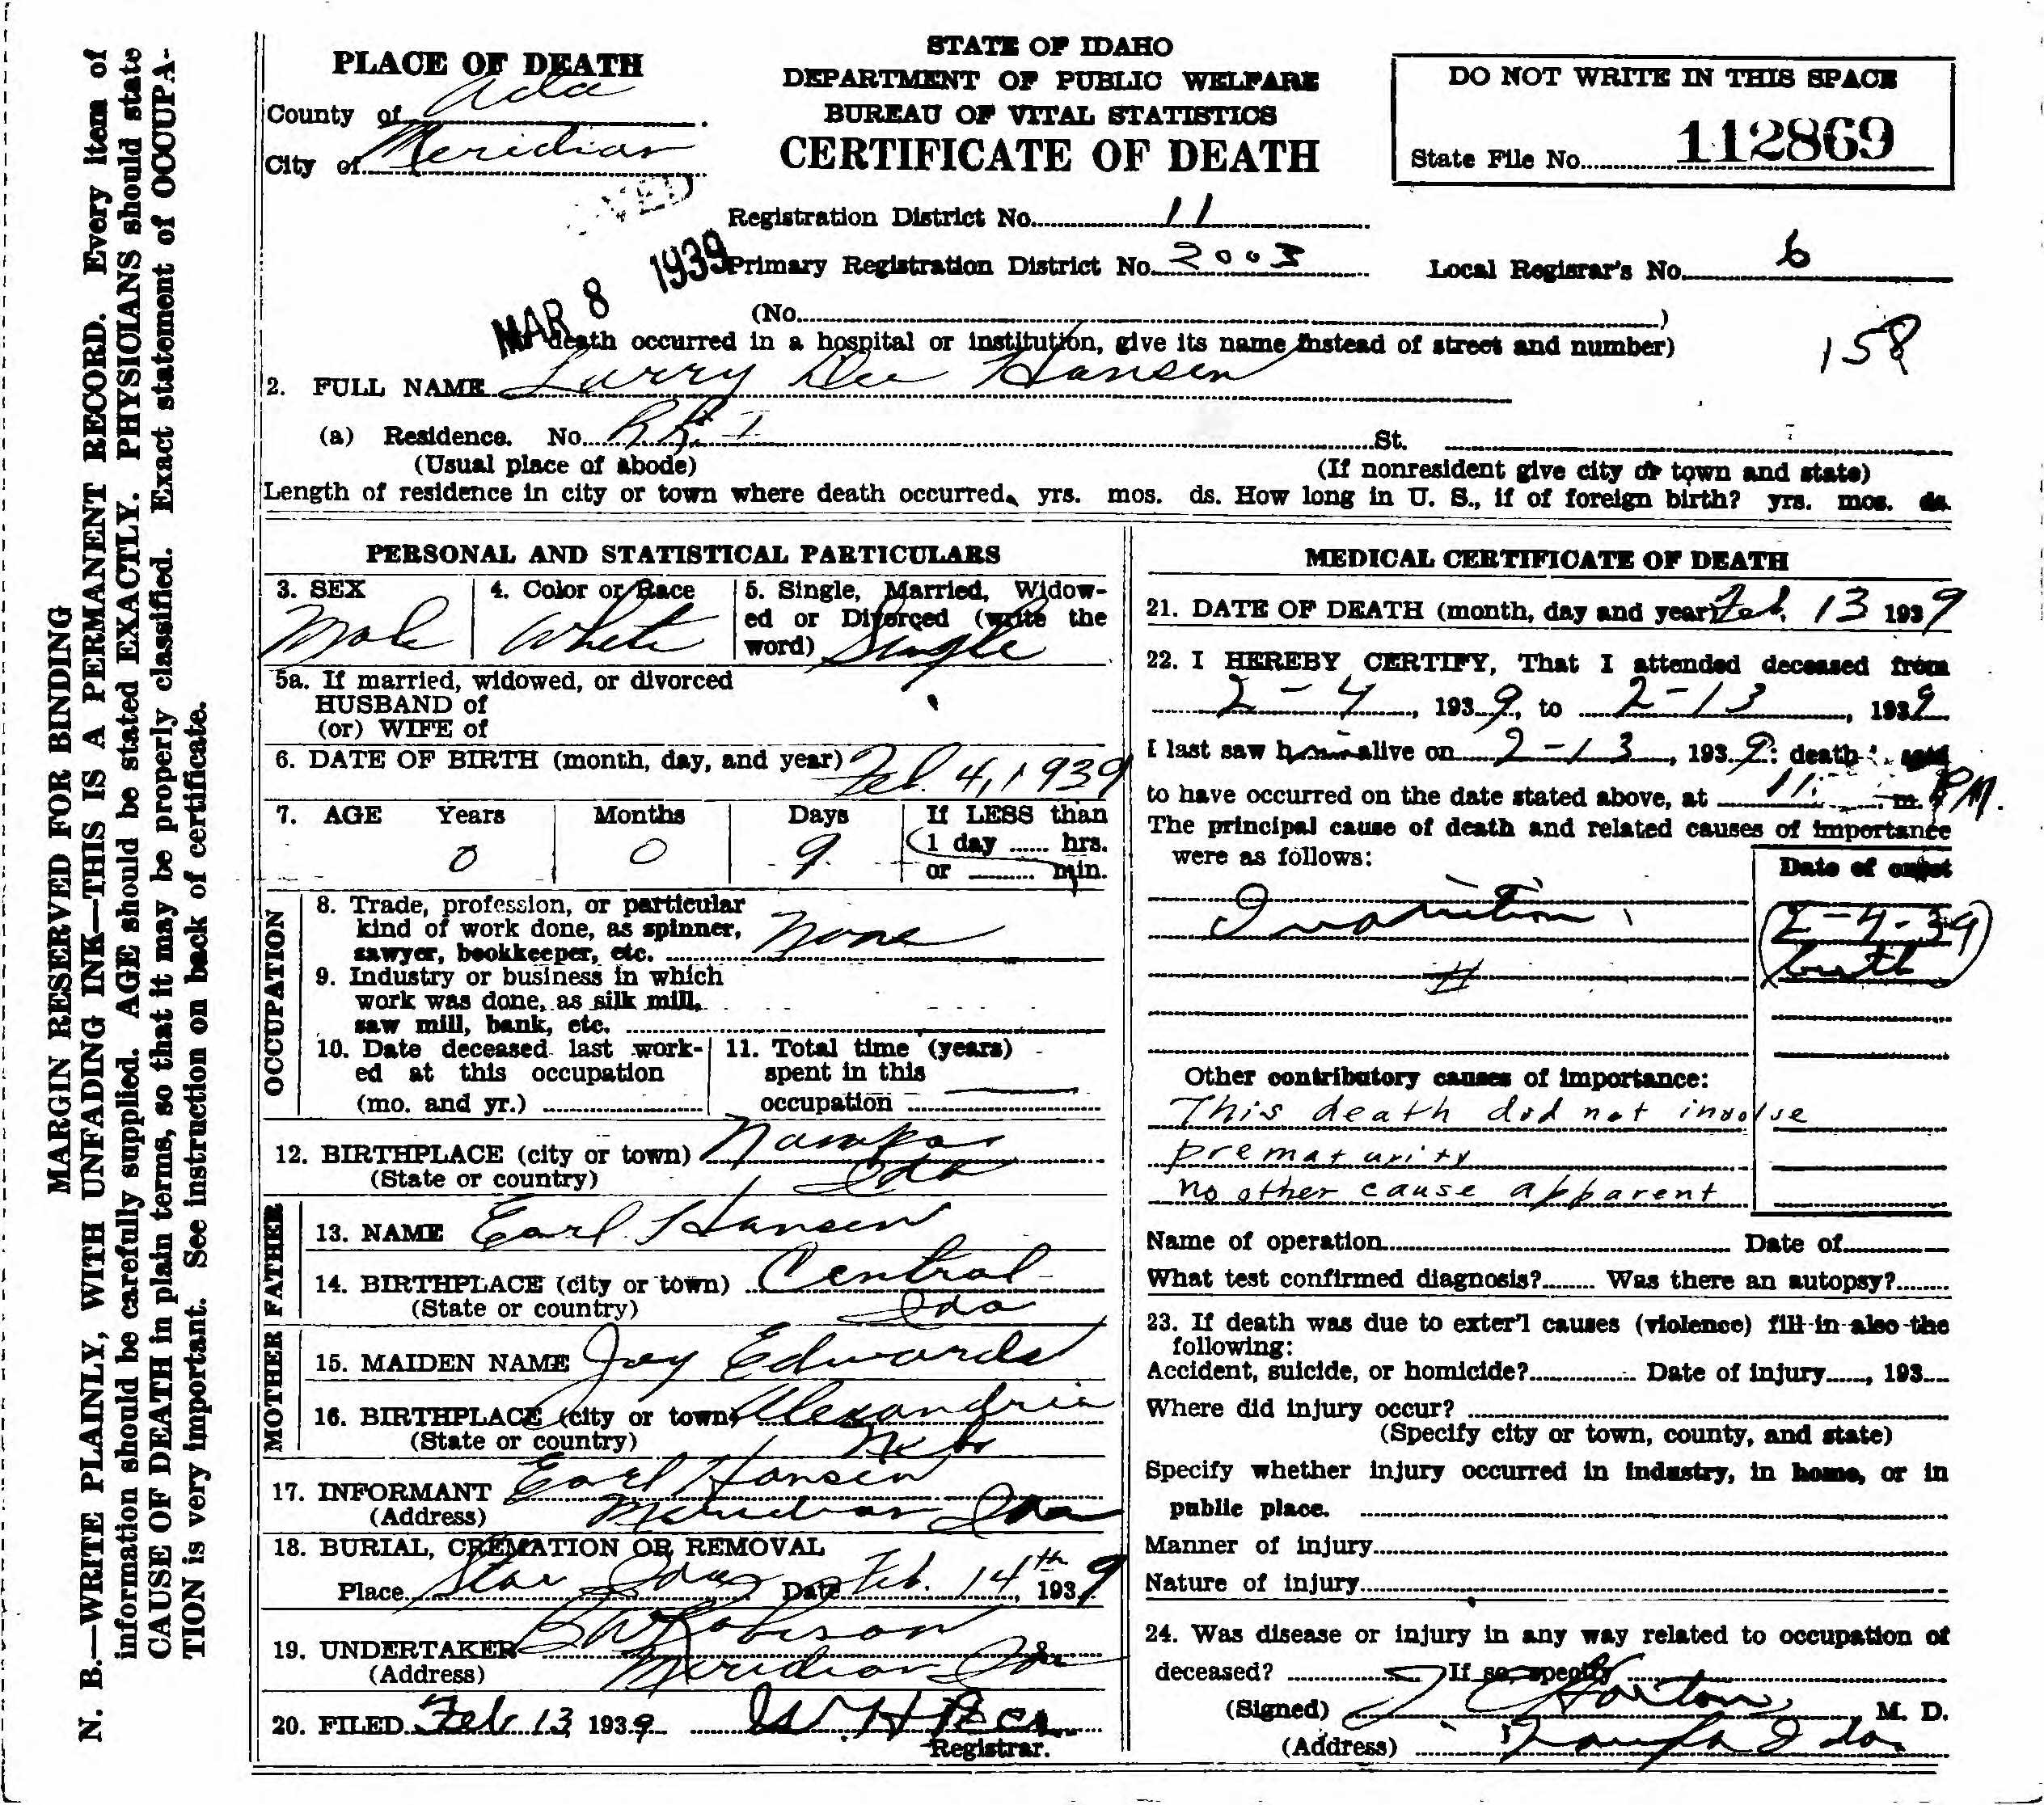 MARGIN RESERVED FOR BINDING
N. B.—WRITE PLAINLY, WITH UNFADING INK—THIS IS A PERMANENT RECORD. Every item of
information should be carefully supplied. AGE should be stated EXACTLY. PHYSICIANS should state
CAUSE OF DEATH in plain terms, so that it may be properly classified. Exact statement of OCCUPA-
TION is very important. See instruction on back of certificate.
PLACE OF DEATH
County of Ada
City of Meridian
STATE OF IDAHO
DEPARTMENT OF PUBLIC WELFARE
BUREAU OF VITAL STATISTICS
CERTIFICATE OF DEATH
DO NOT WRITE IN THIS SPACE
State File No. 112869
Registration District No. 11
MAR 8 1939
Primary Registration District No. 2003
Local Registrar's No. 6
(No. )
If death occurred in a hospital or institution, give its name instead of street and number)
158
2. FULL NAME Larry Dee Hansen
(a) Residence. No. R.R. 1 St.
(Usual place of abode) (If nonresident give city or town and state)
Length of residence in city or town where death occurred, yrs. mos. ds. How long in U. S., if of foreign birth? yrs. mos. ds.
PERSONAL AND STATISTICAL PARTICULARS
3. SEX
Male
4. Color or Race
White
5. Single, Married, Widow-
ed or Divorced (write the
word) Single
5a. If married, widowed, or divorced
HUSBAND of
(or) WIFE of
6. DATE OF BIRTH (month, day, and year) Feb. 4, 1939
7. AGE Years Months Days If LESS than
1 day hrs.
or min.
0 0 9
OCCUPATION
8. Trade, profession, or particular
kind of work done, as spinner,
sawyer, bookkeeper, etc. none
9. Industry or business in which
work was done, as silk mill,
saw mill, bank, etc.
10. Date deceased last work-
ed at this occupation
(mo. and yr.)
11. Total time (years)
spent in this
occupation
12. BIRTHPLACE (city or town) Nampa
(State or country) Ida
FATHER
13. NAME Earl Hansen
14. BIRTHPLACE (city or town) Central
(State or country) Ida
MOTHER
15. MAIDEN NAME Joy Edwards
16. BIRTHPLACE (city or town) Alexandria
(State or country) Nebr
17. INFORMANT Earl Hansen
(Address) Meridian Ida
18. BURIAL, CREMATION OR REMOVAL
Place Star Ida Date Feb. 14th, 1939
19. UNDERTAKER Robison
(Address) Meridian Ida
20. FILED Feb 13, 1939 W H
Registrar.
MEDICAL CERTIFICATE OF DEATH
21. DATE OF DEATH (month, day and year) Feb. 13 1939
22. I HEREBY CERTIFY, That I attended deceased from
2-4, 1939, to 2-13, 1939
I last saw him alive on 2-13, 1939: death said
to have occurred on the date stated above, at 11: m. P.M.
The principal cause of death and related causes of importance
were as follows:
Date of onset
Inanition
2-4-39
birth
Other contributory causes of importance:
This death did not involve
prematurity
no other cause apparent
Name of operation Date of
What test confirmed diagnosis? Was there an autopsy?
23. If death was due to exter'l causes (violence) fill in also the
following:
Accident, suicide, or homicide? Date of injury, 193
Where did injury occur?
(Specify city or town, county, and state)
Specify whether injury occurred in industry, in home, or in
public place.
Manner of injury
Nature of injury
24. Was disease or injury in any way related to occupation of
deceased? If so specify
(Signed) Horton, M. D.
(Address) Nampa Ida.